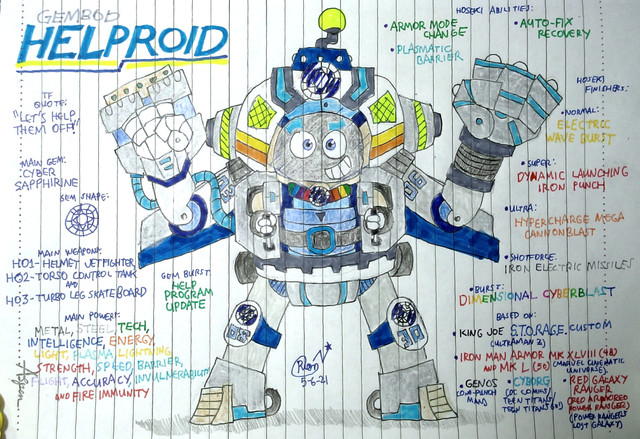 GEMBOD
HELPROID
TF
QUOTE:
"LET'S HELP
THEM OFF!"
MAIN GEM:
CYBER
SAPPHIRINE
GEM SHAPE:
MAIN WEAPON:
HO1-HELMET JETFIGHTER
HO2-TORSO CONTROL TANK
AND
HO3-TURBO LEG SKATEBOARD
MAIN POWER:
METAL, STEEL, TECH,
INTELLIGENCE, ENERGY,
LIGHT, PLASMA, LIGHTNING,
STRENGTH, SPEED, BARRIER,
FLIGHT, ACCURACY, INVULNERABILITY
AND FIRE IMMUNITY
GEM BURST:
HELP
PROGRAM
UPDATE
5-6-21
HOSEKI ABILITIES:
• ARMOR MODE
CHANGE
• PLASMATIC
BARRIER
• AUTO-FIX
RECOVERY
HOSEKI
FINISHERS:
• NORMAL:
ELECTRIC
WAVE BURST
• SUPER:
DYNAMIC LAUNCHING
IRON PUNCH
• ULTRA:
HYPERCHARGE MEGA
CANNONBLAST
• SHOTFORCE:
IRON ELECTRIC MISSILES
• BURST:
DIMENSIONAL CYBERBLAST
BASED ON:
• KING JOE S.T.O.R.A.G.E. CUSTOM
(ULTRAMAN Z)
• IRON MAN ARMOR MK XLVIII (48)
AND MK L (50) (MARVEL CINEMATIC
UNIVERSE)
• GENOS
(ONE-PUNCH
MAN)
• CYBORG
(DC COMICS/
TEEN TITANS/
TEEN TITANS GO!)
• RED GALAXY
RANGER
(RED ARMORED
POWER RANGER)
(POWER RANGERS
LOST GALAXY)